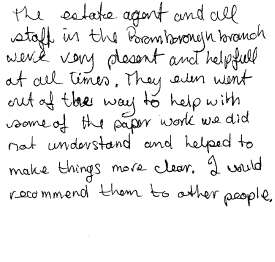 The estate agent and all
staff in the Farnborough branch
were very plesent and helpfull
at all times. They even went
out of the way to help with
some of the paper work we did
not understand and helped to
make things more clear. I would
recommend them to other people.